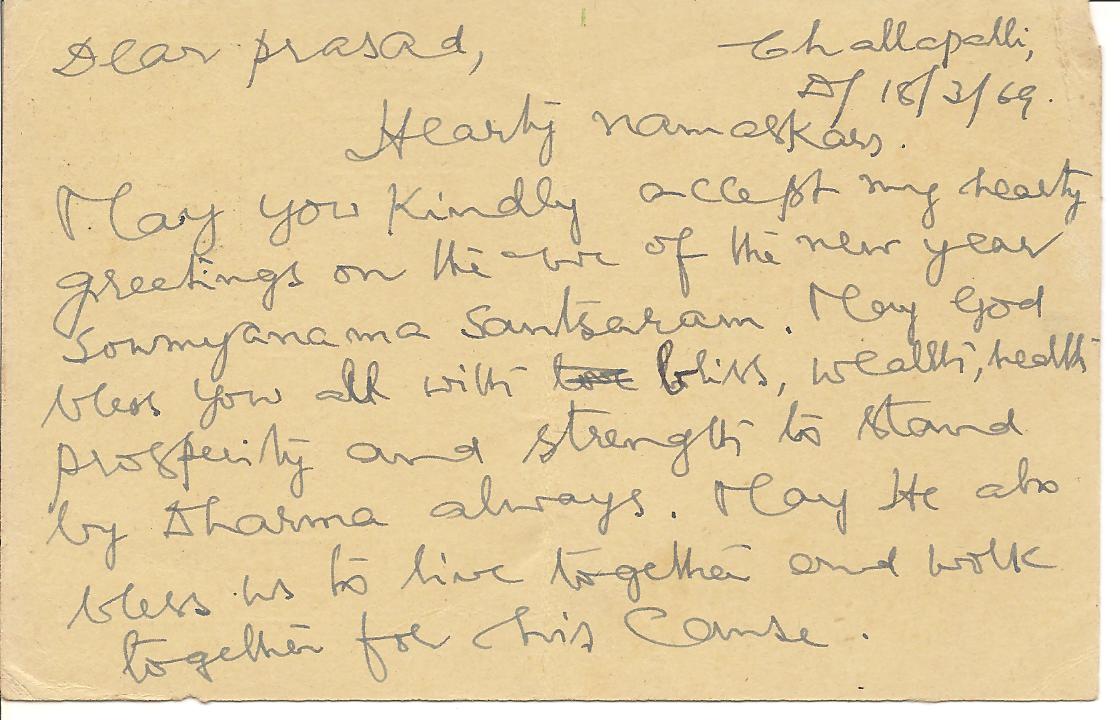 Dear prasad,
Challapalli,
D/ 18/3/69.
Hearty namaskars.
May you Kindly accept my hearty
greetings on the eve of the new year
Sowmyanama Samtsaram. May God
bless you all with bliss, wealth, health
prosperity and strength to stand
by Dharma always. May He also
bless us to live together and work
together for His Cause.